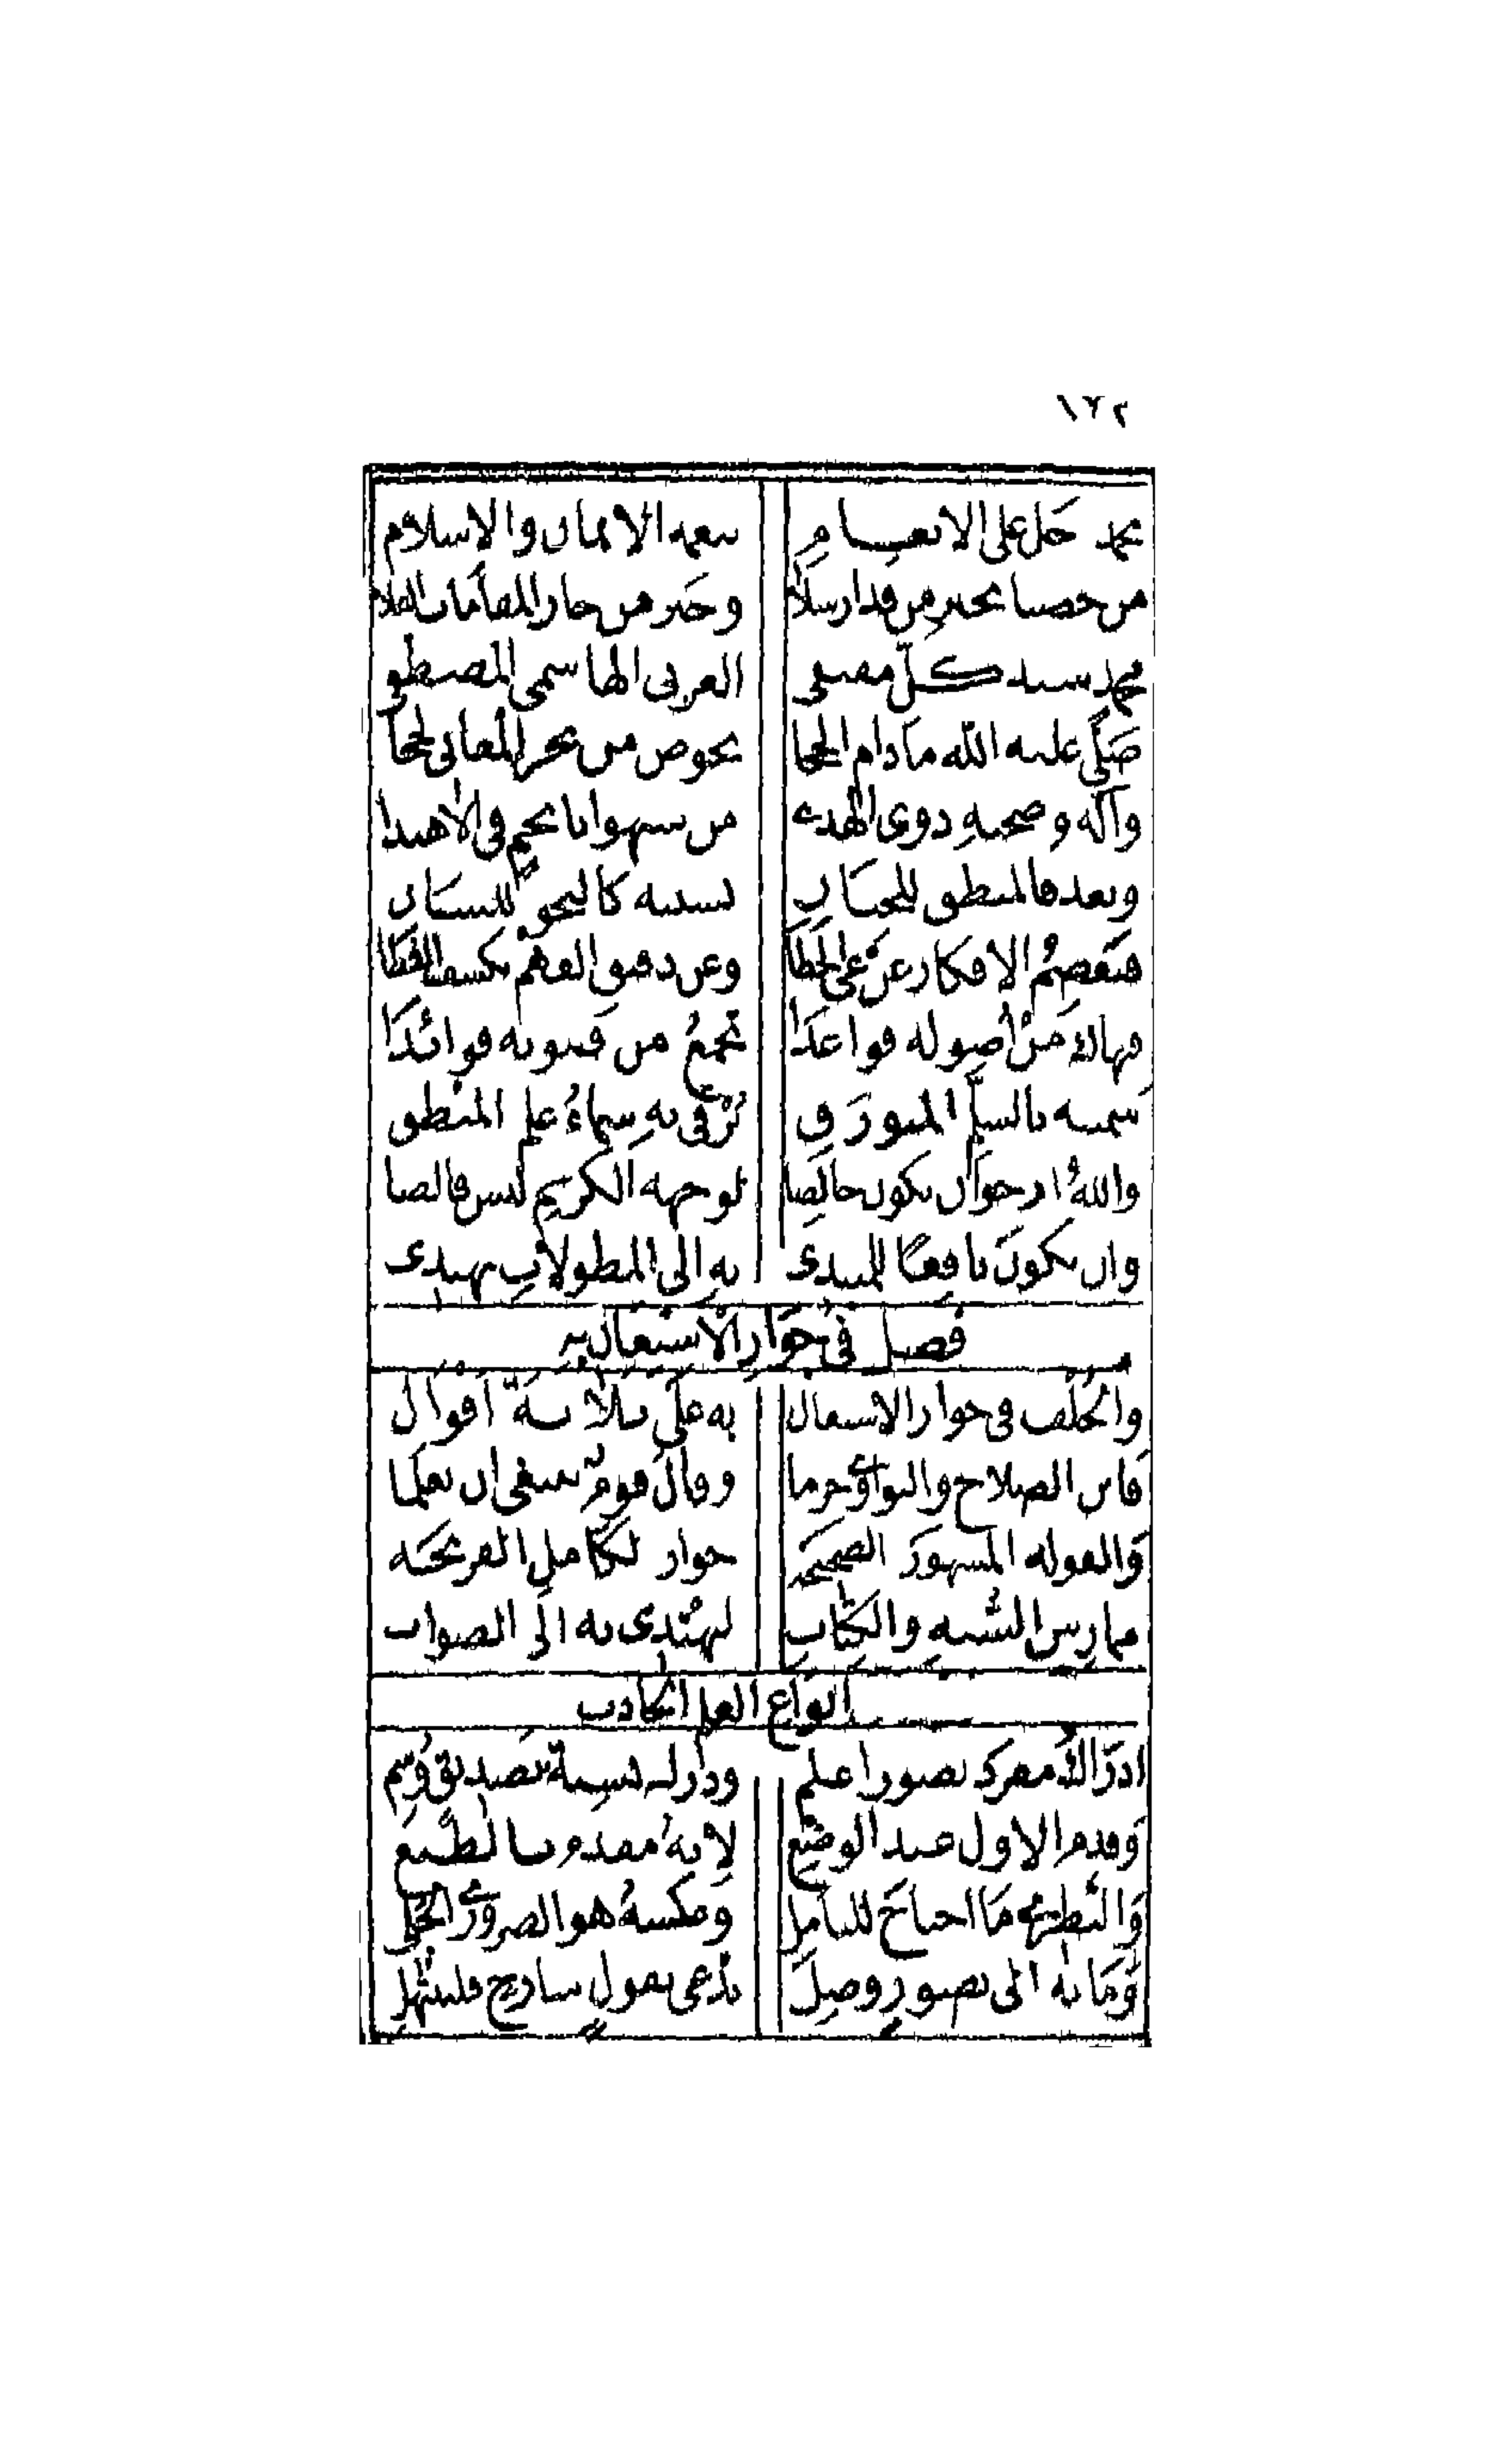 ١٢٢
نحمد جل على الانعام بنعمة الايمان والاسلام
من خصنا بخير من قد ارسلا وخير من حاز المقامات العلا
محمد سيد كل مقتفى العربى الهاشمى المصطفى
صَلَّى عليه الله مَا دام الحجا يخوض من بحر المعانى لججا
وآله وصحبهِ ذوى الهدى من شبهوا بانجمٍ فى الاهتدا
وبعد فالمنطق للجنَانِ نسبته كالنحو للسان
فيَعصِمُ الافكار عن غى الخطا وعن دقيق الفهم يكشف الغطا
فهاك مِنْ اُصوله قواعدَا تجمعُ من فنونه فوائدَا
سميته بالسلّم المنورَق يُرْقى به سماءُ علم المنطق
واللهَ ارجو اَن يكون خالصا لوجهه الكريم ليس قالصا
وان يكونَ نافعًا للمبتدى بهِ الى المطولاتِ يهتدى
فصل فى جوَازِ الْاشتغال به
والخُلف فى جواز الاشتغال به علَى ثلاثة اقوال
فابن الصلاح والنواوى حرما وقالَ قومٌ ينبغى ان يعلما
والقولة المشهورَة الصحيحه جوازه لكامل القريحَه
ممارِس السُّنةِ والكِتَابِ ليهْتدِى به الَى الصواب
انوَاع العلم الحادث
ادرَاك مفرد تصورا علم ودرك نسبة بتصديق وُسِم
وَقدم الاول عند الوضع لِانهُ مقدم بالطَّبع
وَالنظرى مَا احتاجَ للتأملِ وَعكسهُ هو الضرورى الجلى
وَمَا به الى تصورٍ وصِلَ يُدعى بقولٍ شارح فلتبتهل